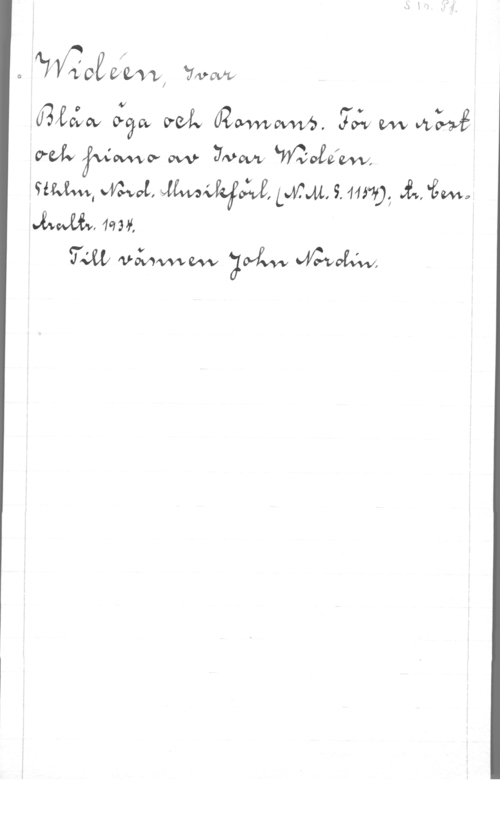 S 1 r. Pf.
Widéen, Ivar
Blåa öga och Romans. För en röst
och piano av Ivar Widéen.
Sthlm, Nord. Musikförl. (N.M.S. 1154); tr. Cen-
traltr. 1934.
Till vännen John Nordin.